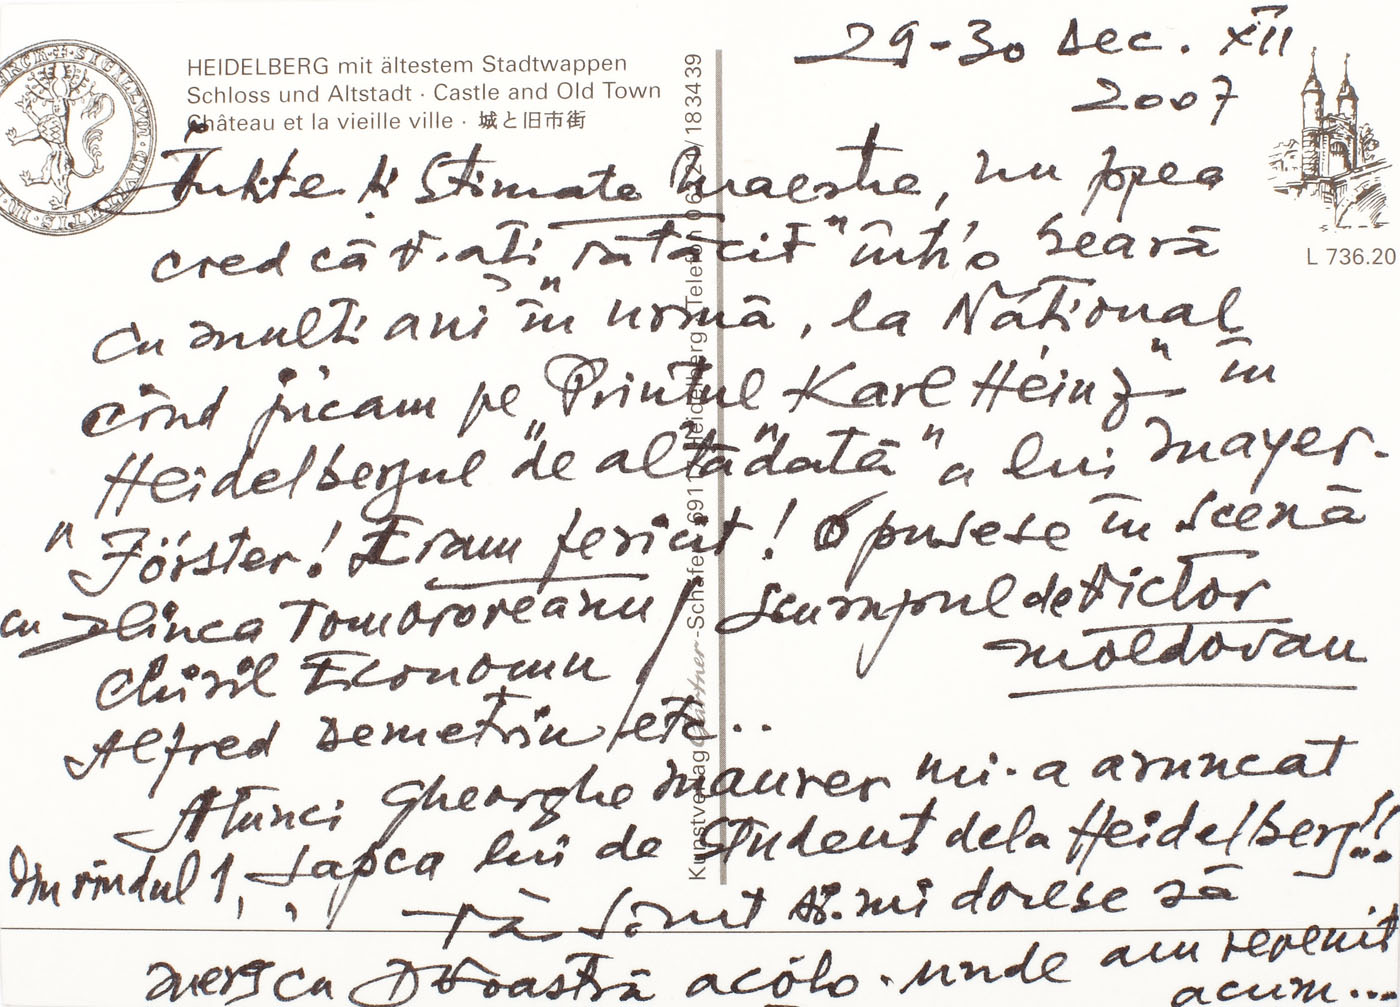 HEIDELBERG mit ältestem Stadtwappen
Schloss und Altstadt · Castle and Old Town
Château et la vieille ville · 城と旧市街
L 736.20
29-30 Dec. XII
2007
Iubite și Stimate Maestre, nu prea
cred că v-ați "rătăcit" într'o seară
cu mulți ani "în" urmă, la Național
cînd jucam pe "Prințul Karl Heinz" în
Heidelbergul "de altădată" a lui Mayer-
"Förster! Eram fericit! O pusese în scenă
cu Ilinca Tomoroveanu / scumpul de Victor
Moldovan
Chiril Economu
Alfred Demetriu etc..
Atunci Gheorghe Maurer mi-a aruncat
din rîndul 1, șapca lui de Student dela Heidelberg!!
Vă sărut și-mi doresc să
merg cu Dvoastră acolo unde am revenit
acum...
Kunstverlag Gärtner-Schäfer 6911 Heidelberg Telefon